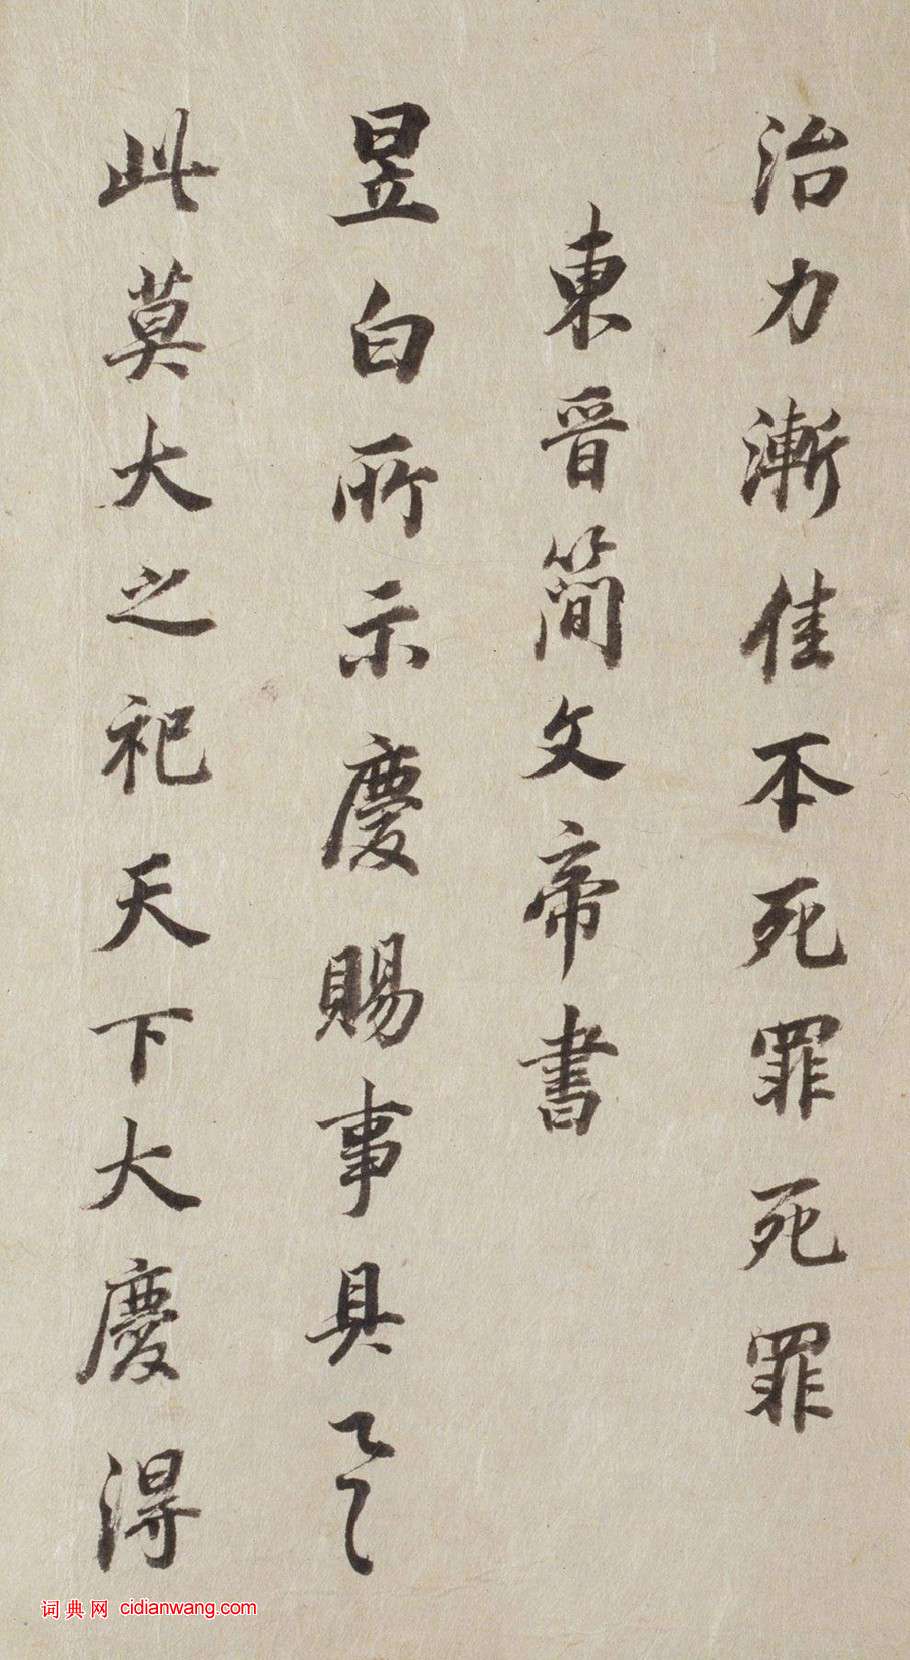 治力漸佳不死罪死罪
東晉簡文帝書
昱白所示慶賜事具之
此莫大之祀天下大慶得
词典网 cidianwang.com